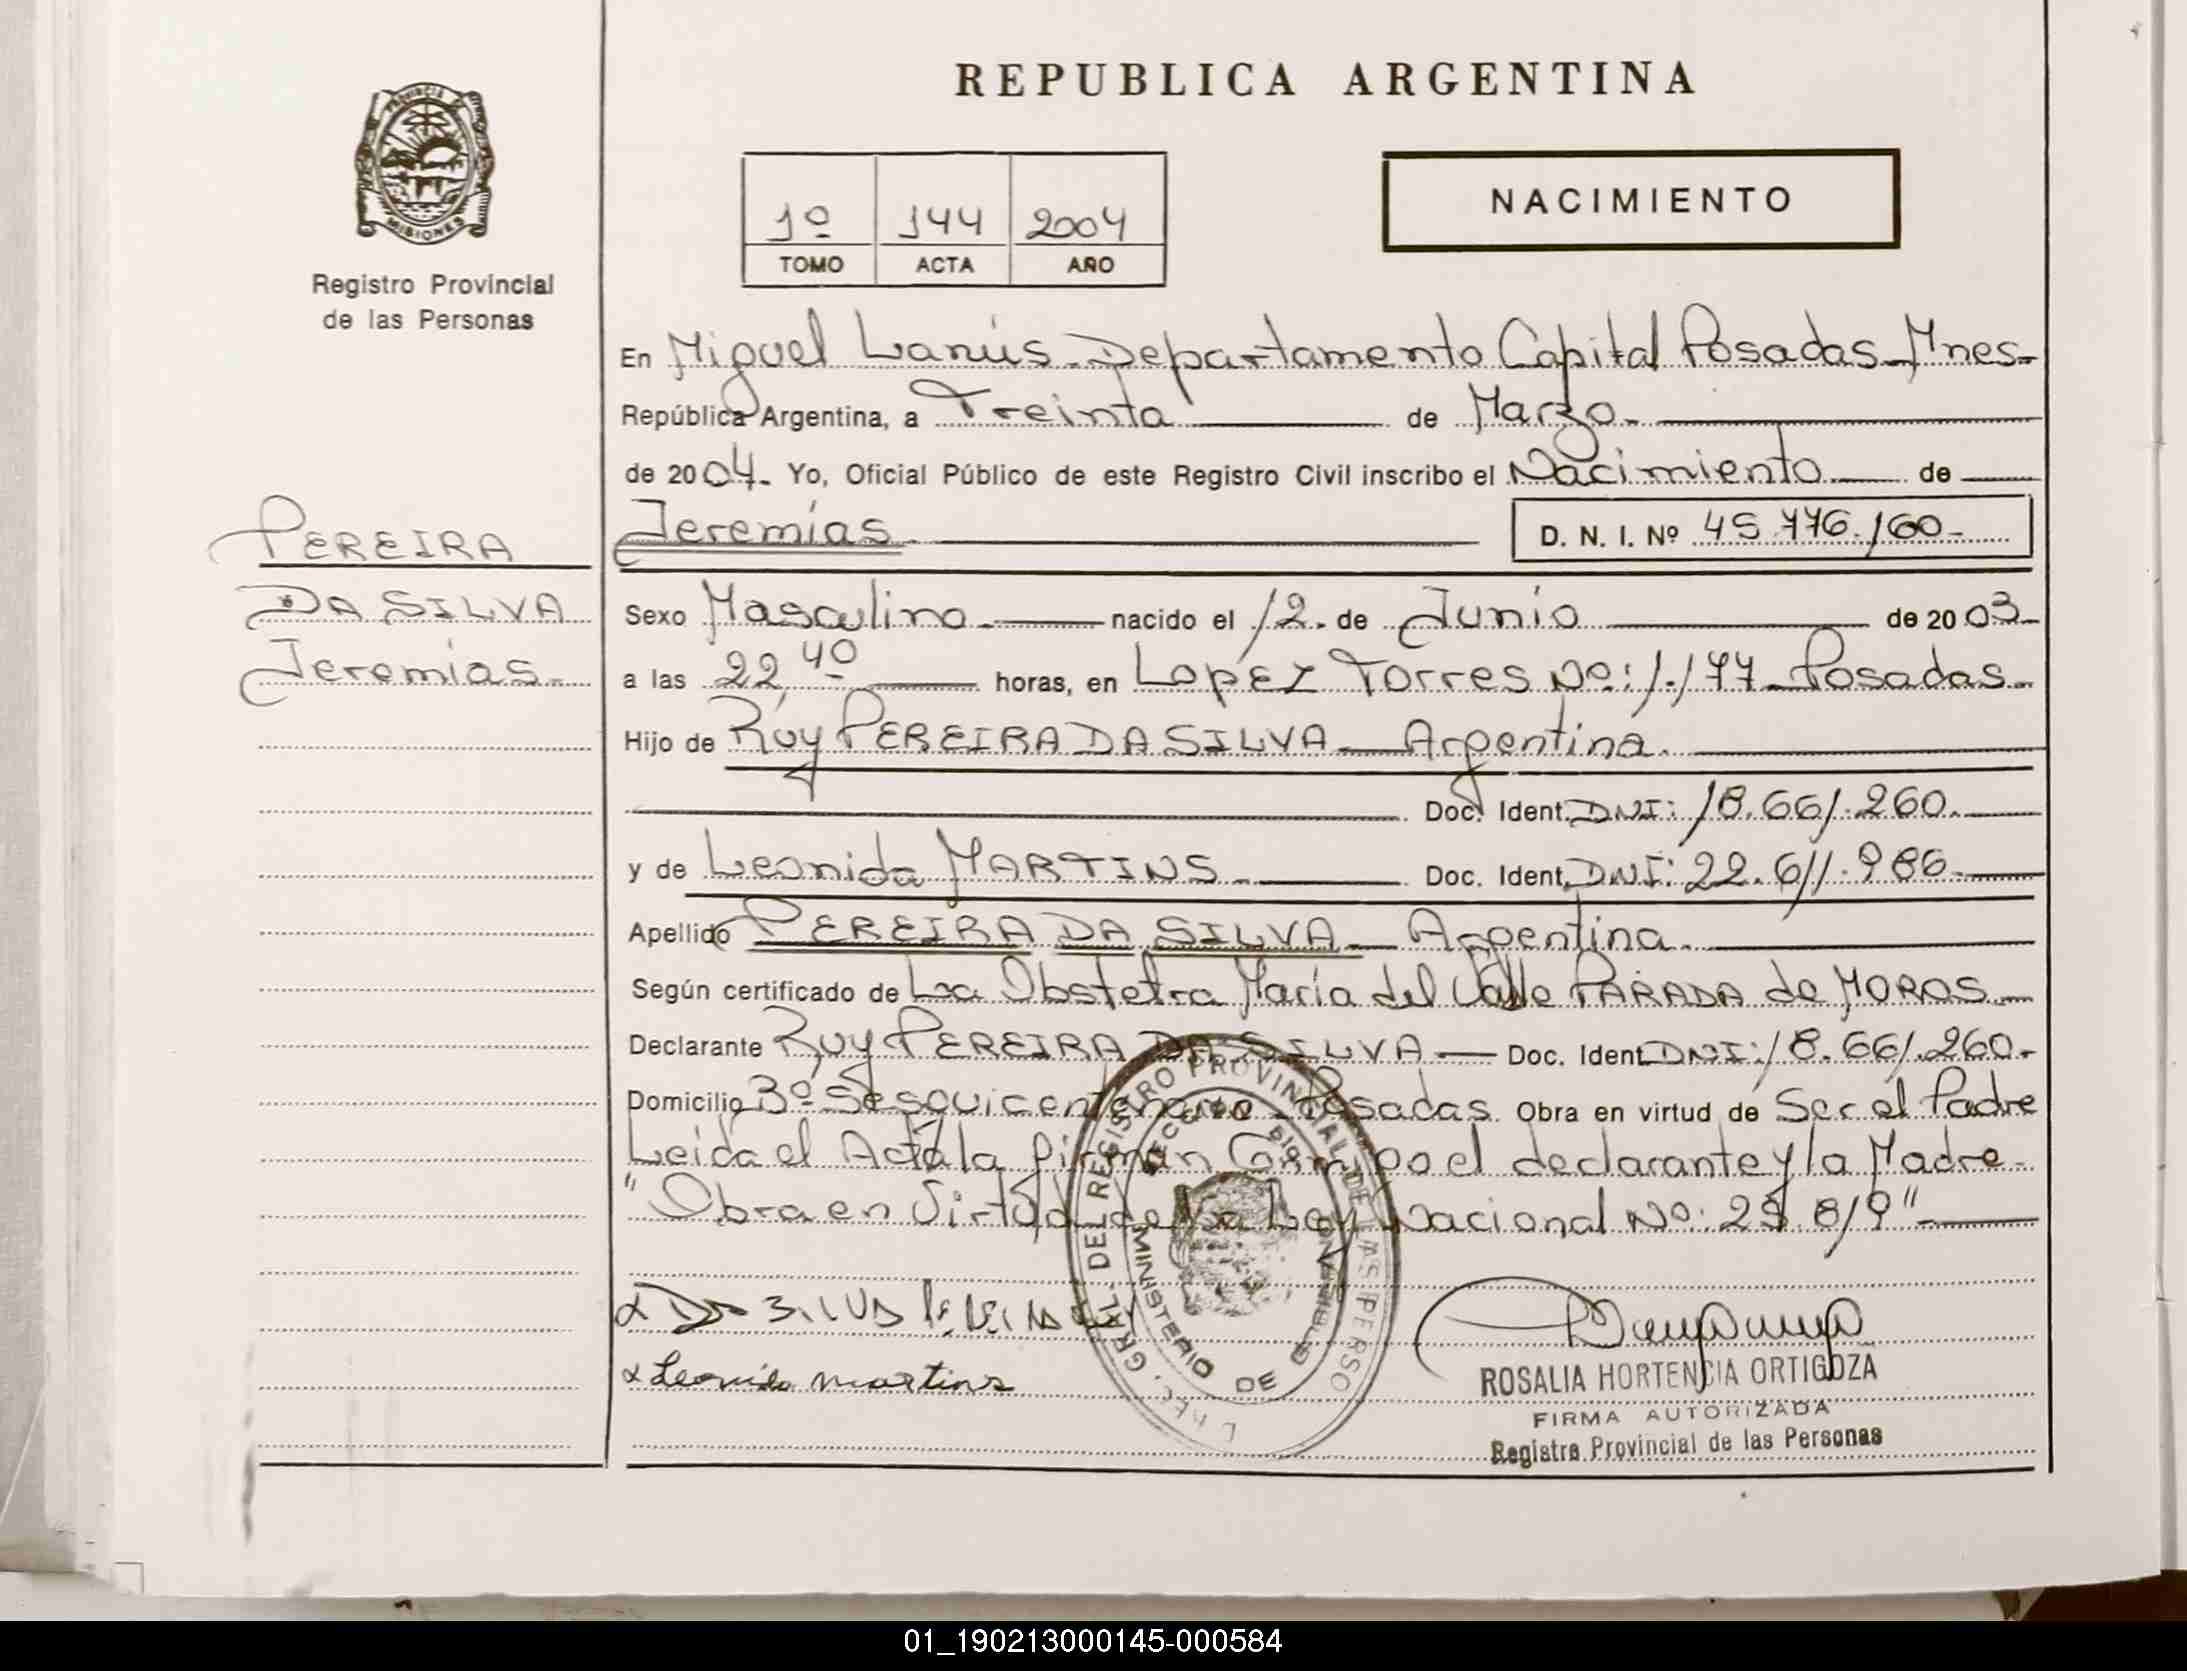 REPUBLICA ARGENTINA
PROVINCIA DE MISIONES
Registro Provincial
de las Personas
1º 144 2004
TOMO ACTA AÑO
NACIMIENTO
En Miguel Lanús - Departamento Capital Posadas - Mnes-
República Argentina, a Treinta de Marzo.
de 2004. Yo, Oficial Público de este Registro Civil inscribo el Nacimiento de
Jeremías D. N. I. Nº 45.776.160-
PEREIRA
DA SILVA
Jeremías-
Sexo Masculino nacido el 12. de Junio de 2003-
a las 22,40 horas, en LopEz Torres No: 1.177 - Posadas-
Hijo de Ruy PEREIRA DA SILVA - Argentina.
Doc. Ident. DNI: 18.661.260.
y de Leonida MARTINS - Doc. Ident. DNI: 22.611.986-
Apellido PEREIRA DA SILVA - Argentina.
Según certificado de La Obstetra María del Valle PARADA de MOROS-
Declarante Ruy PEREIRA DA SILVA - Doc. Ident. DNI: 18.661.260-
Domicilio Bº Sesquicentenario - Posadas. Obra en virtud de Ser el Padre
Leida el Acta la firman Conmigo el declarante y la Madre-
"Obra en Virtud de La Ley Nacional No: 25 819"-
DEL REGISTRO PROVINCIAL DE LAS PERSO
MINISTERIO DE
Leonida martins
ROSALIA HORTENCIA ORTIGOZA
FIRMA AUTORIZADA
Registro Provincial de las Personas
01_190213000145-000584